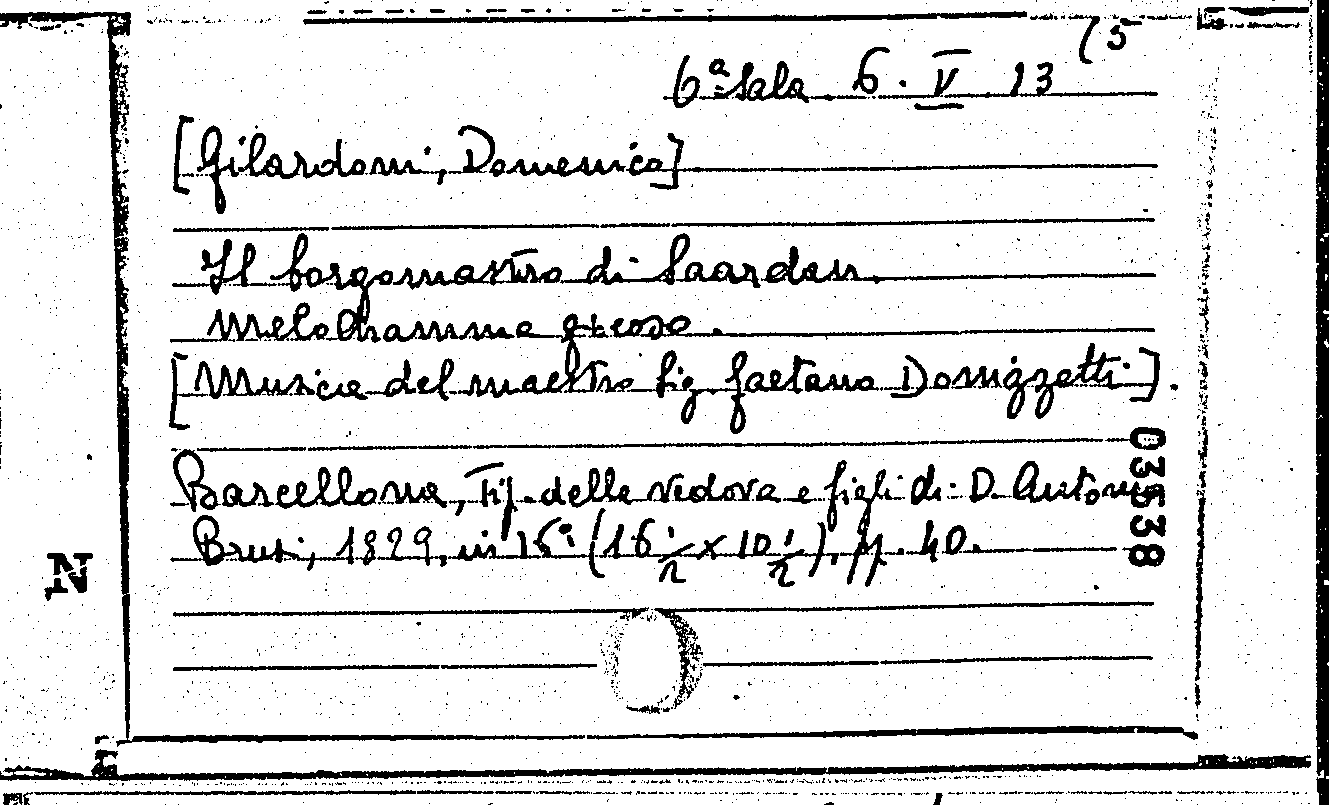 6ª Sala. 6. V. 13 (5
[Gilardoni, Domenico]
Il borgomastro di Saardam.
Melodramma giocoso.
[Musica del maestro Sig. Gaetano Donizzetti].
Barcellona, Tip. della vedova e figli di D. Antonio
Brusi, 1829, in 16º (16 1/2 x 10 1/2), pp. 40.
03538
N